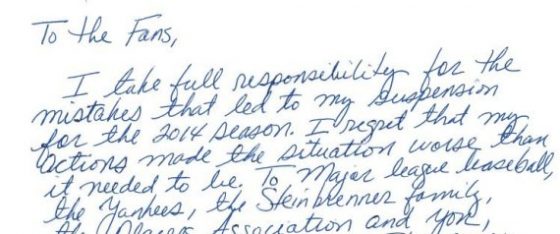 To the Fans,
I take full responsibility for the
mistakes that led to my suspension
for the 2014 season. I regret that my
actions made the situation worse than
it needed to be. To Major league baseball,
the Yankees, the Steinbrenner family,
the Players Association and you,